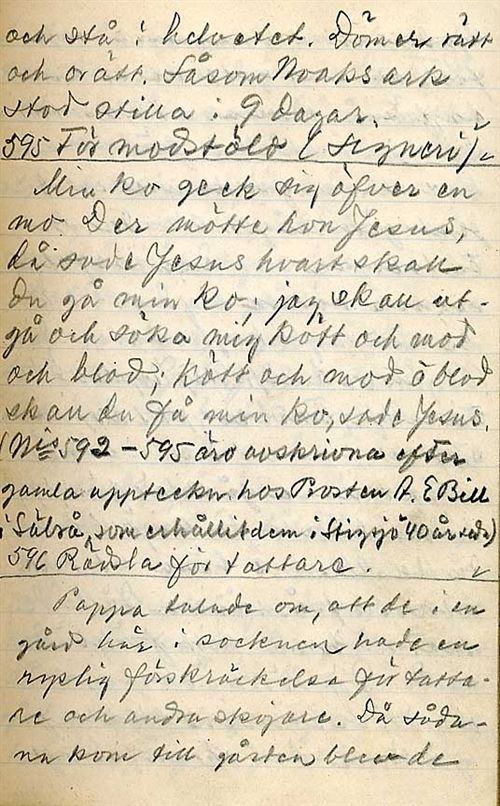 och stå i helvetet. Dömer rätt
och orätt. Såsom Noaks ark
stod stilla i 9 dagar.
595 För modstöld (signeri)
Min ko geck sig öfver en
mo. Der mötte hon Jesus,
då sade Jesus hvart skall
du gå min ko; jag skall ut-
gå och söka mig kött och mod
och blod; kött och mod å blod
skall du få min ko, sade Jesus.
(Nis 592 – 595 äro avskrivna efter
gamla uppteckn. hos Prosten A. E Bill
i Säbrå, som erhållit dem i Stigsjö 40 år sedn)
596 Rädsla för tattare.
Pappa talade om, att de i en
gård här i socknen hade en
ryslig förskräckelse för tatta-
re och andra skojare. Då såda-
na kom till gården blev de